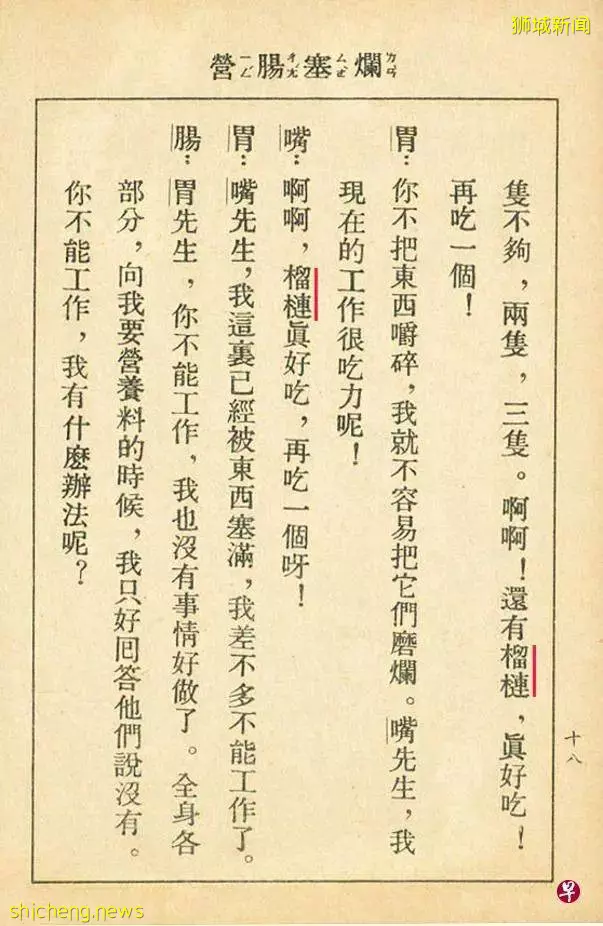 狮城新闻
爛ㄌㄢˋ塞ㄙㄜˋ腸ㄔㄤˊ營ㄧㄥˊ
隻不夠，兩隻，三隻。啊啊！還有榴槤，眞好吃！
再吃一個！
胃：你不把東西嚼碎，我就不容易把它們磨爛。嘴先生，我
現在的工作很吃力呢！
嘴：啊啊，榴槤眞好吃，再吃一個呀！
胃：嘴先生，我這裏已經被東西塞滿，我差不多不能工作了。
腸：胃先生，你不能工作，我也沒有事情好做了。全身各
部分，向我要營養料的時候，我只好囘答他們說沒有。
你不能工作，我有什麽辦法呢？
十八
shicheng.news
早